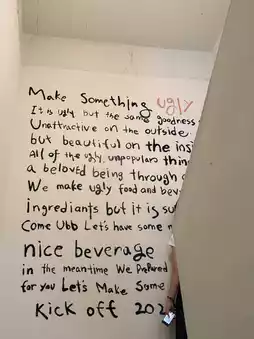 Make Something ugly
It is ugly but the same goodness
Unattractive on the outside
but beautiful on the insi
All of the ugly, unpopulara thin
a beloved being through
We make ugly food and bev
ingrediants but it is su
Come Ubb Let's have some
nice beverage
in the meantime We Prepared
for you Let's Make Some
Kick off 202